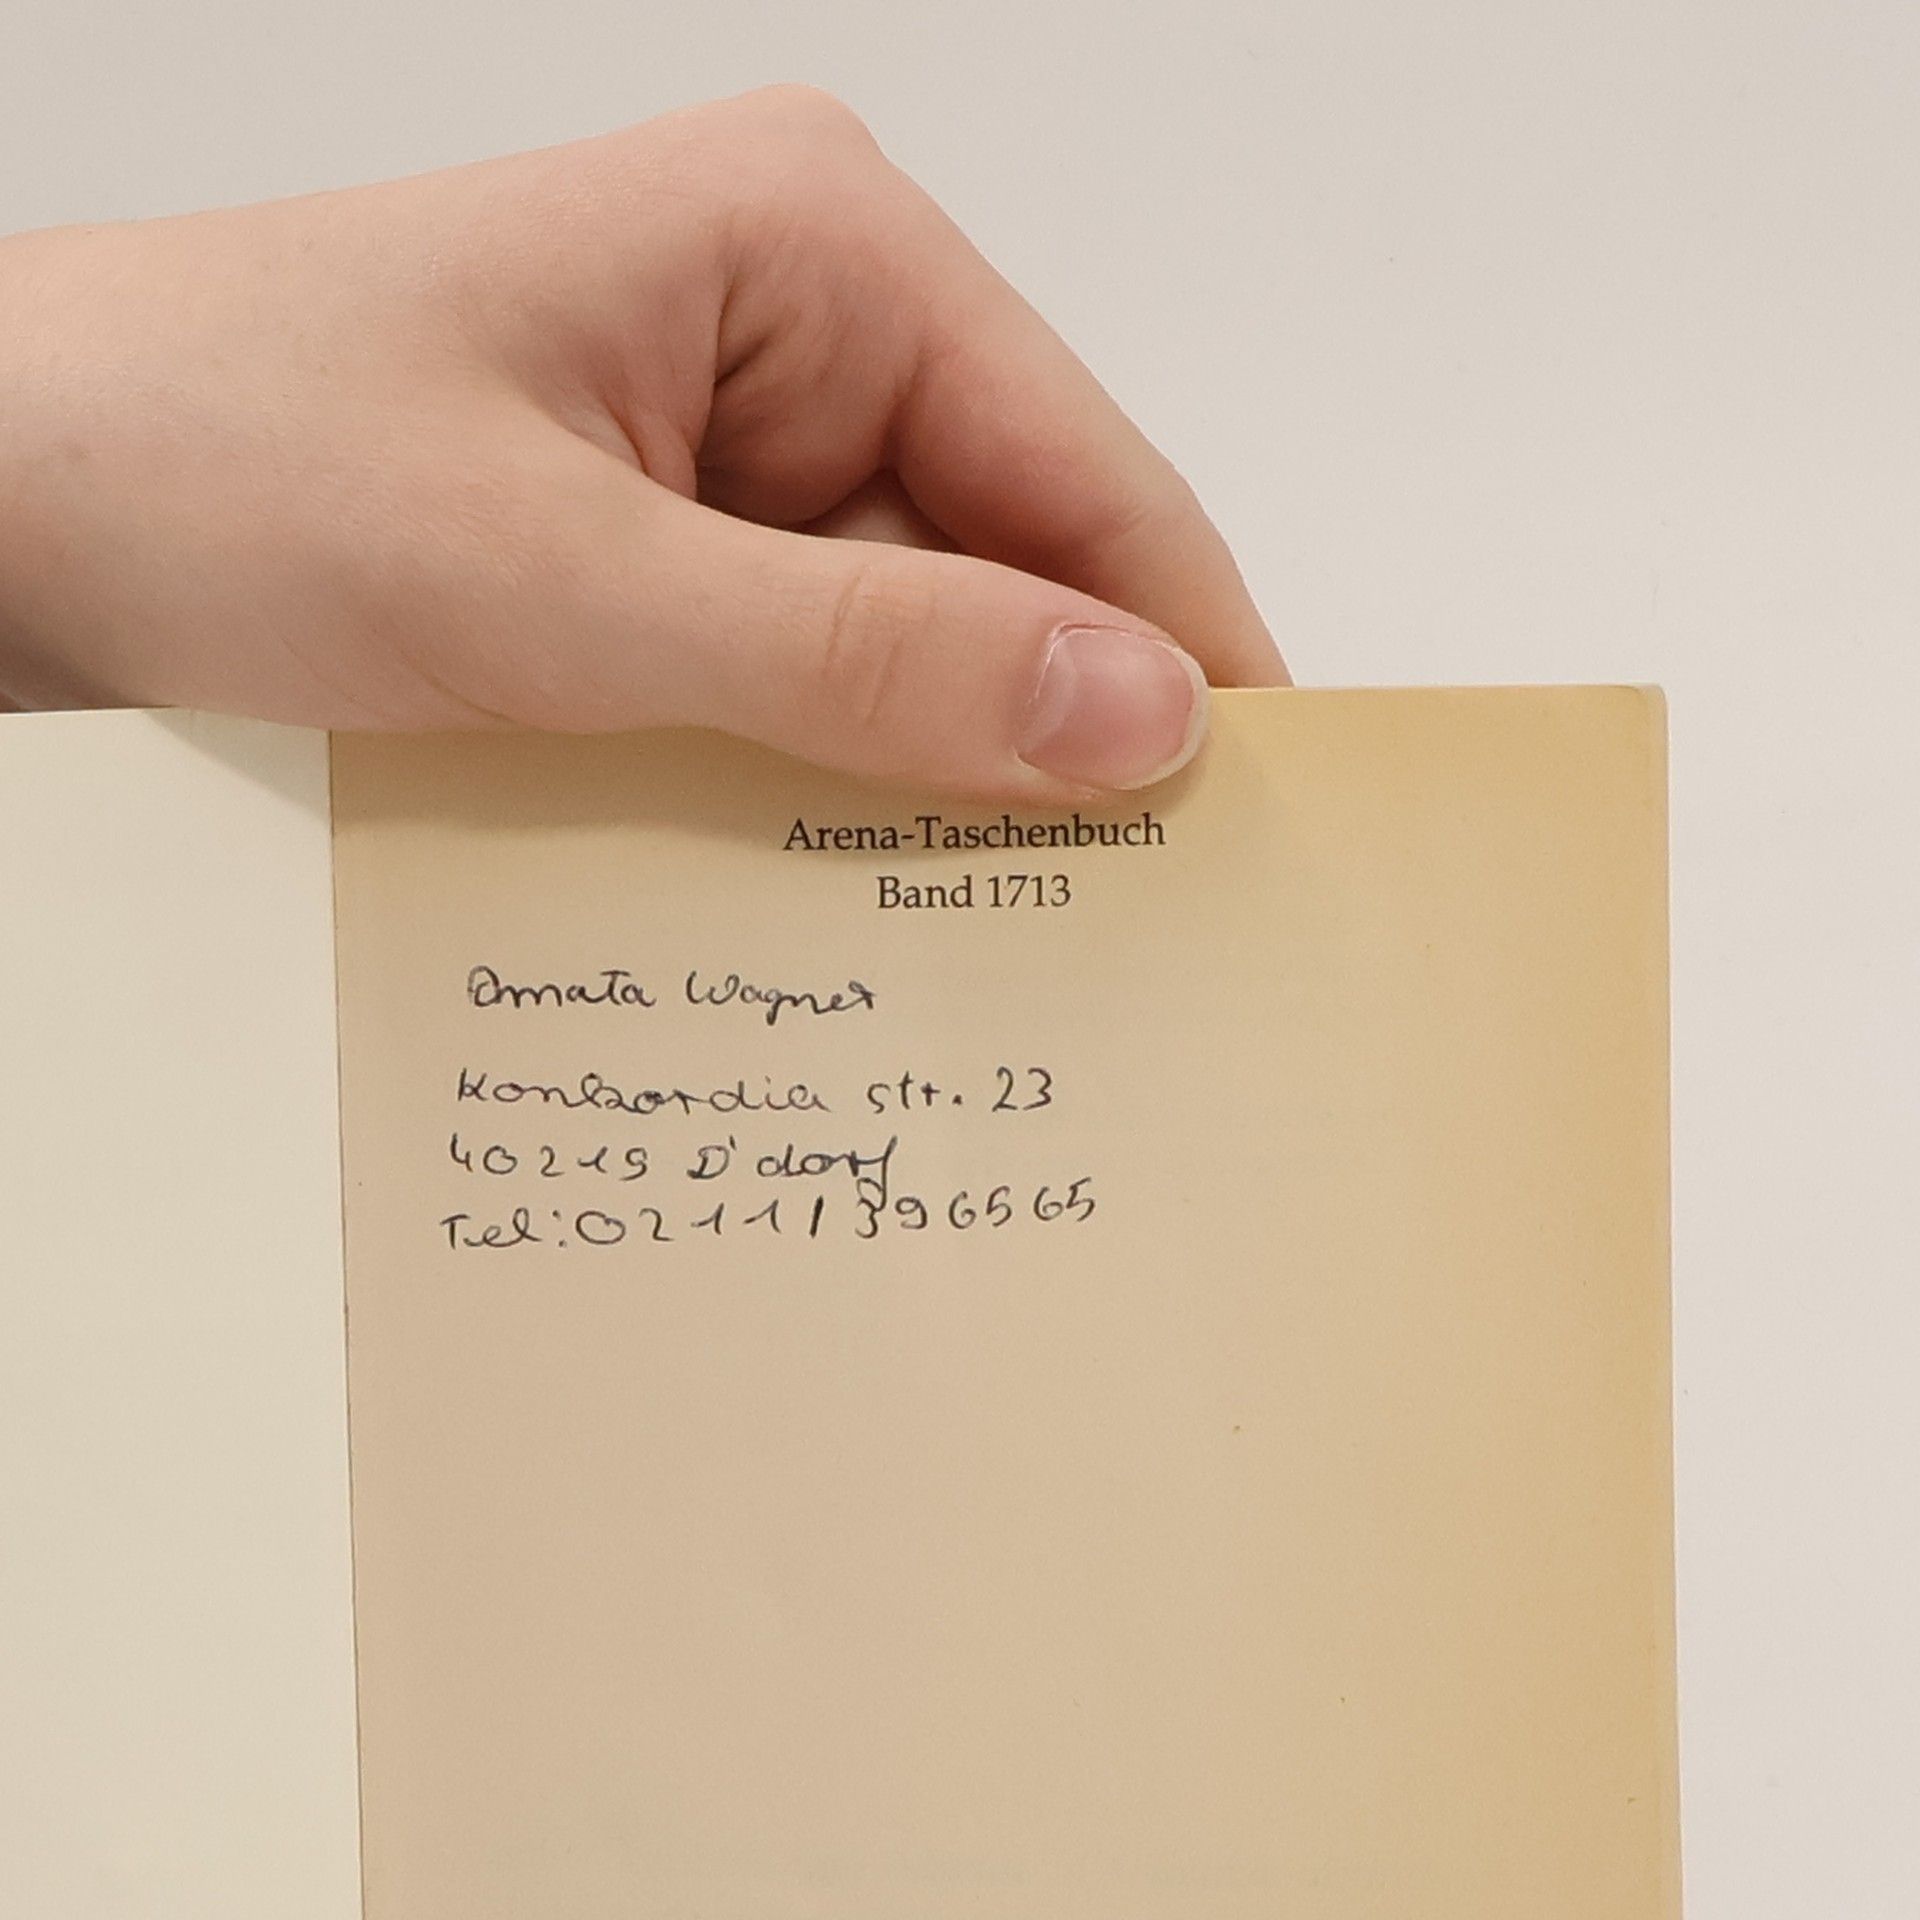 Arena-Taschenbuch
Band 1713
Amata Wagner
Konkordia str. 23
40219 D'dorf
Tel: 0211/396565